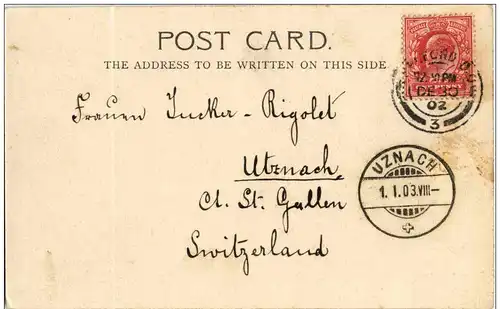 POST CARD.
THE ADDRESS TO BE WRITTEN ON THIS SIDE.
12.30 PM
DE 30
02
3
Frauen Zucker-Rigolet
Utznach
Ct. St. Gallen
Switzerland
UZNACH
1.1.03.VIII–